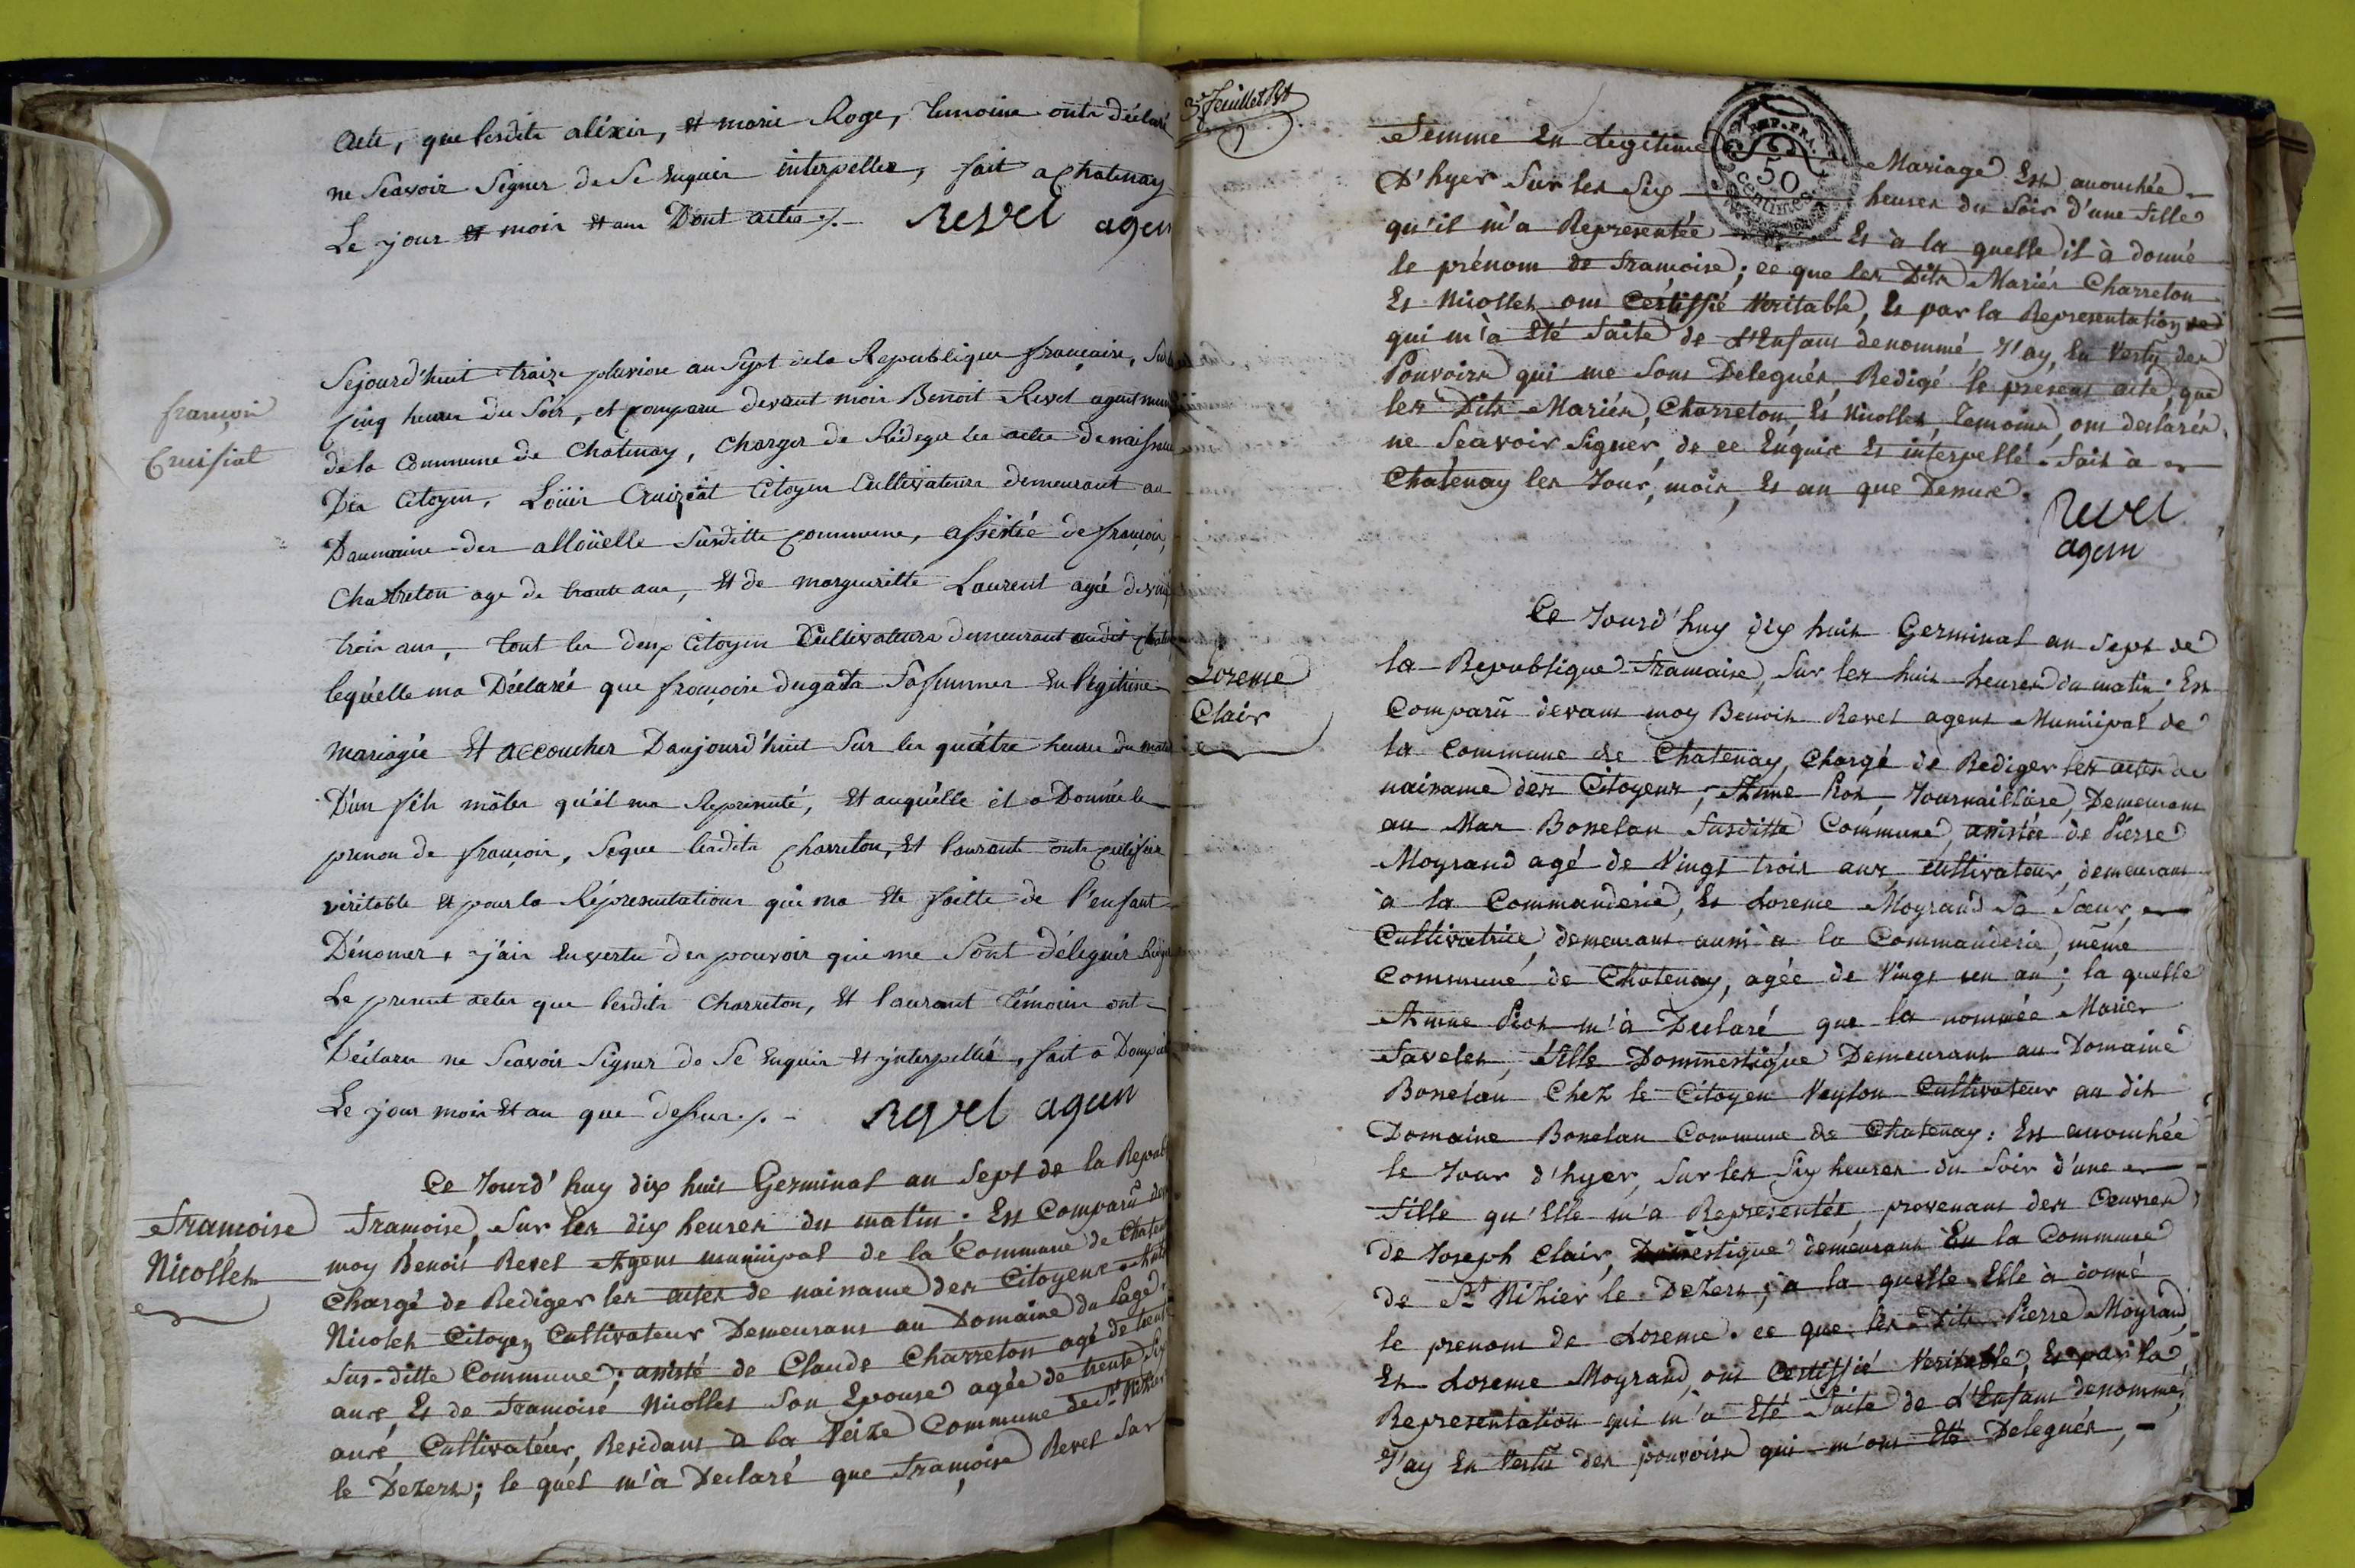 acte, que lesdits aléxis, et marie Roge, temoins onts déclaré
ne Scavoir Signer de Se enquis interpeller, fait a Chatenay
Le jour et mois et an Dont actes ./. Revel agen
Sejourd'huit traize pluviose an Sept de la Republique françaire,
françois
Cruisiat
sinq heures du Soir, et comparu devant mois Benoit Revel agent
de la Commune de Chatenay, charger de Rédeger les actes de naissance
Des Citoyens, Loüis Cruiziat Citoyen Cultivateurs demeurant au
Daumaine des alloüelle Susditte commune, assisté de françois,
Charreton age de trante ans, et de margueritte Laurent agé de vingt
trois ans, tout les deux Citoyens Cultivateurs demeurant audit
lequ'elle ma Déclaré que françoise dugata Safemmes en légitime
mariagie et accoucher Daujourd'huit Sur les quattre heures du matin
D'un fils mâles qu'il ma Représenté, et auquélle il a Donnée le
prenon de françois, Seque lesdits charreton, et laurant onts
véritable et pour la Réprésentations qui ma ete faitte de l'enfant
Dénomer, j'ais en vertu des pouvoir qui me Sont délegués
Le present actes que lesdits Charreton, et laurant témoins ont
Déclarer ne Scavoir Signer de Se enquis et jnterpellés, fait a
Le jour mois et an que dessus ./. Revel agen
Ce Jourd'huy dix huit Germinal an Sept de la Repub
Françoise
Nicollet
Françoise, Sur les dix heures du matin: Est Comparû
moy Benoit Revel Agent municipal de la Commune de Chaten
Chargé de Rediger les actes de naissance des Citoyens
Nicolet Citoyen Cultivateur Demeurant au Domaine du Page
Sus-ditte Commune; assisté de Claude Charreton agé de
ans, Et de Françoise Nicollet Son Epouse agée de trente Six
ans, Cultivatéur, Residant à la Veize Commune de St. Nizier
le Dezert; le quel m'à Declaré que Françoise Revel Sa
3e. feuillet Rt
REP. FRA.
50
centimes
Femme en Legitime Mariage Est accouchée
d'hyer Sur les Six heures du Soir d'une fille
qu'il m'a Representée Et à la quelle il à donné
le prénom de françoise; ce que les Dits Mariés Charreton
Et Nicollet ont Certiffié Veritable, Et par la Representation
qui m'à Eté faite de L'Enfant denommé, J'ay, en Vertu des
Pouvoirs qui me Sont Delegués, Redigé le present acte, que
les Dits Mariés, Charreton, Et Nicollet, Temoins, ont declarés
ne Scavoir Signer, de ce Enquis Et interpellé. Fait à
Chatenay les Jour, mois, Et an que Dessus.
Revel
agen
Ce Jourd'huy dix huit Germinal an Sept de
Loreme
Clair
la Republique Française, Sur les huit heures du matin; Est
Comparû devant moy Benoit Revel agent Municipal de
la Commune de Chatenay, Chargé de Rediger les actes de
naissance des Citoyens; Anne Pion, Journaillière, Demeurant
au Mas Bonelau Susditte Commune, assistée de Pierre
Moyrand agé de Vingt trois ans, cultivateur, demeurant
à la Commanderie, Et Loreme Moyrand Sa Sœur,
Cultivatrice, demeurant aussi à la Commanderie, même
Commune de Chatenay, agée de Vingt un an; la quelle
Anne Pion m'à Declaré que la nommée Marie
Favelet, fille Dommestique Demeurant au Domaine
Bonelau Chez le Citoyen Veylon Cultivateur au dit
Domaine Bonelau Commune de Chatenay: Est accouchée
le Jour d'hyer, Sur les Six heures du Soir d'une
fille qu'Elle m'a Representée, provenant des Oeuvres
de Joseph Clair, Domestique demeurant En la Commune
de St. Nizier le Dezert; à la quelle Elle à donné
le prenom de Loreme. ce que les Dits Pierre Moyrand,
Et Loreme Moyrand, ont Certiffié Veritable, Et par la
Representation qui m'à Eté faite de L'Enfant denommé,
J'ay En Vertu des pouvoirs qui m'ont Eté Delegués,